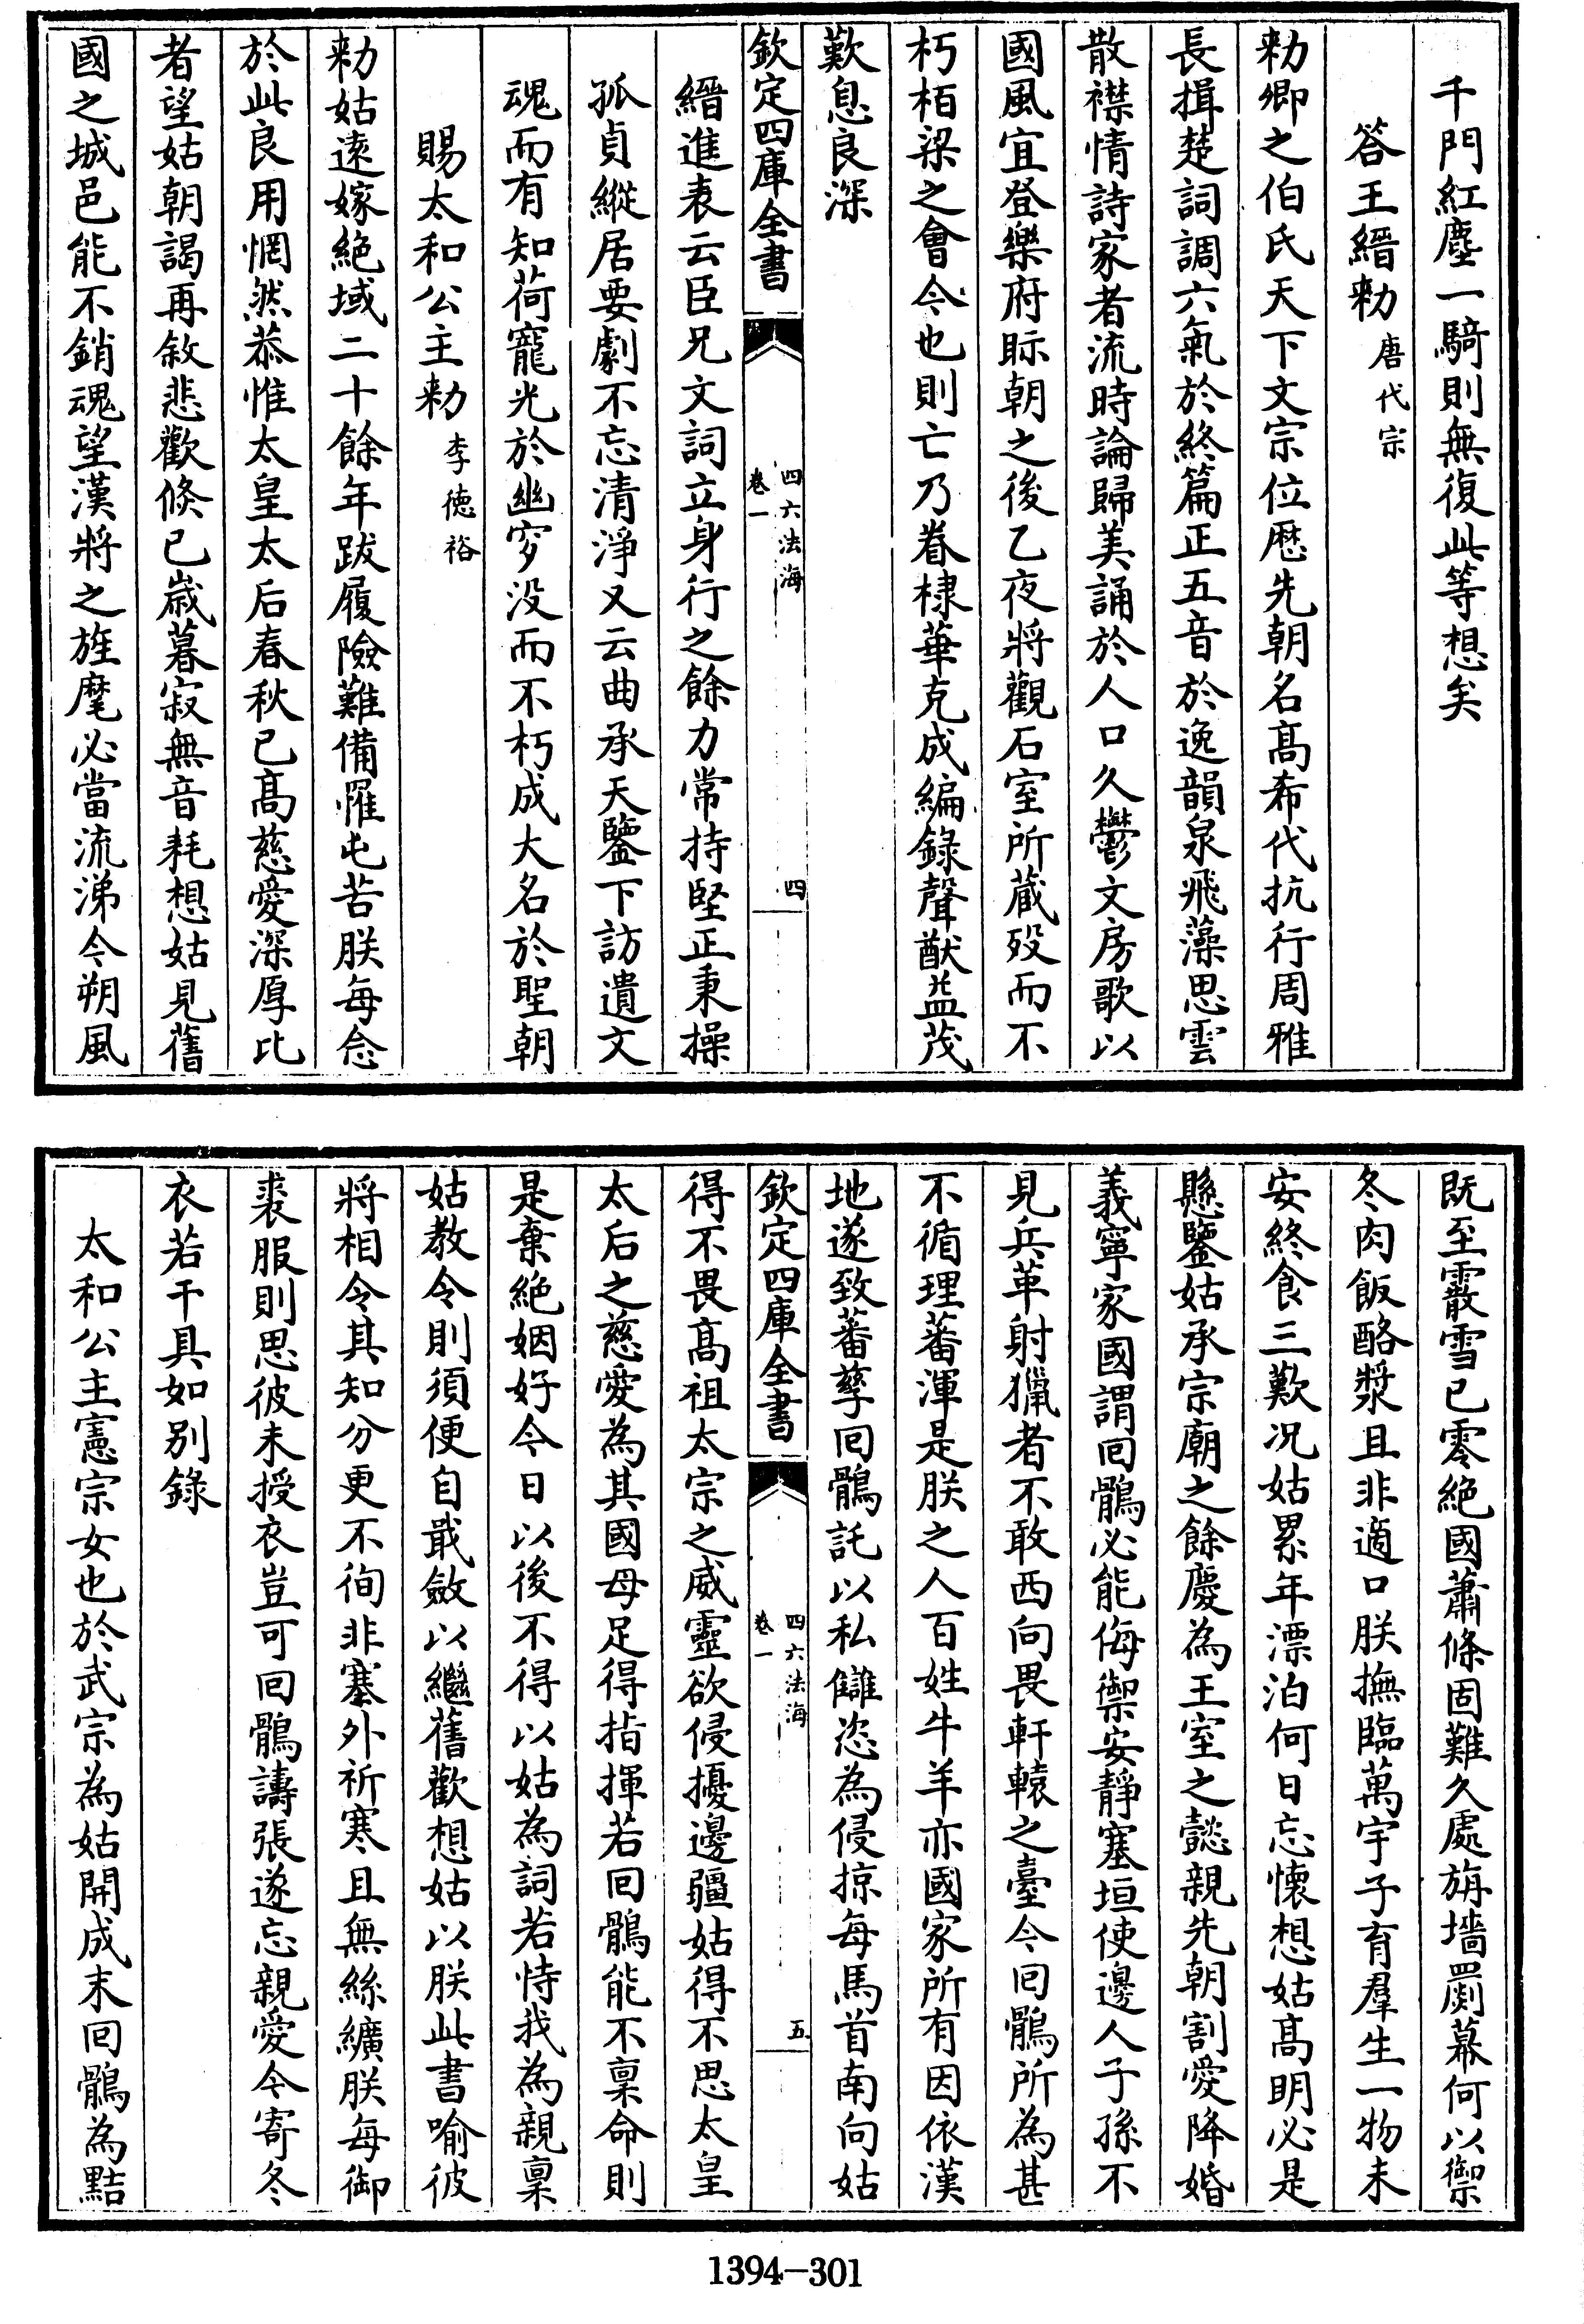 千門紅塵一騎則無復此等想矣
答王縉勅唐代宗
勅卿之伯氏天下文宗位歴先朝名髙希代抗行周雅
長揖楚詞調六氣於終篇正五音於逸韻泉飛藻思雲
散襟情詩家者流時論歸美誦於人口久鬱文房歌以
國風宜登樂府眎朝之後乙夜將觀石室所蔵殁而不
朽栢梁之會今也則亡乃眷棣華克成編錄聲猷益茂
歎息良深
欽定四庫全書
四六法海
卷一
四
縉進表云臣兄文詞立身行之餘力常持堅正秉操
孤貞縱居要劇不忘清淨又云曲承天鑒下訪遺文
魂而有知荷寵光於幽穸没而不朽成大名於聖朝
賜太和公主勅李徳裕
勅姑逺嫁絶域二十餘年跋履險難備罹屯苦朕每念
於此良用惘然恭惟太皇太后春秋已髙慈愛深厚比
者望姑朝謁再敘悲歡倏已嵗暮寂無音耗想姑見舊
國之城邑能不銷魂望漢將之旌麾必當流涕今朔風
既至霰雪已零絶國蕭條固難久處旃墻罽幕何以禦
冬肉飯酪漿且非適口朕撫臨萬宇子育羣生一物未
安終食三歎况姑累年漂泊何日忘懷想姑髙明必是
懸鑒姑承宗廟之餘慶為王室之懿親先朝割愛降婚
義寧家國謂回鶻必能侮禦安靜塞垣使邊人子孫不
見兵革射獵者不敢西向畏軒轅之臺今回鶻所為甚
不循理蕃渾是朕之人百姓牛羊亦國家所有因依漢
地遂致蕃孳回鶻託以私讎恣為侵掠每馬首南向姑
欽定四庫全書
四六法海
卷一
五
得不畏髙祖太宗之威靈欲侵擾邊疆姑得不思太皇
太后之慈愛為其國母足得指揮若回鶻能不稟命則
是棄絶姻好今日以後不得以姑為詞若恃我為親稟
姑教令則須便自戢斂以繼舊歡想姑以朕此書喻彼
將相令其知分更不徇非塞外祈寒且無絲纊朕每御
裘服則思彼未授衣豈可回鶻譸張遂忘親愛今寄冬
衣若干具如别錄
太和公主憲宗女也於武宗為姑開成末回鶻為黠
1394-301